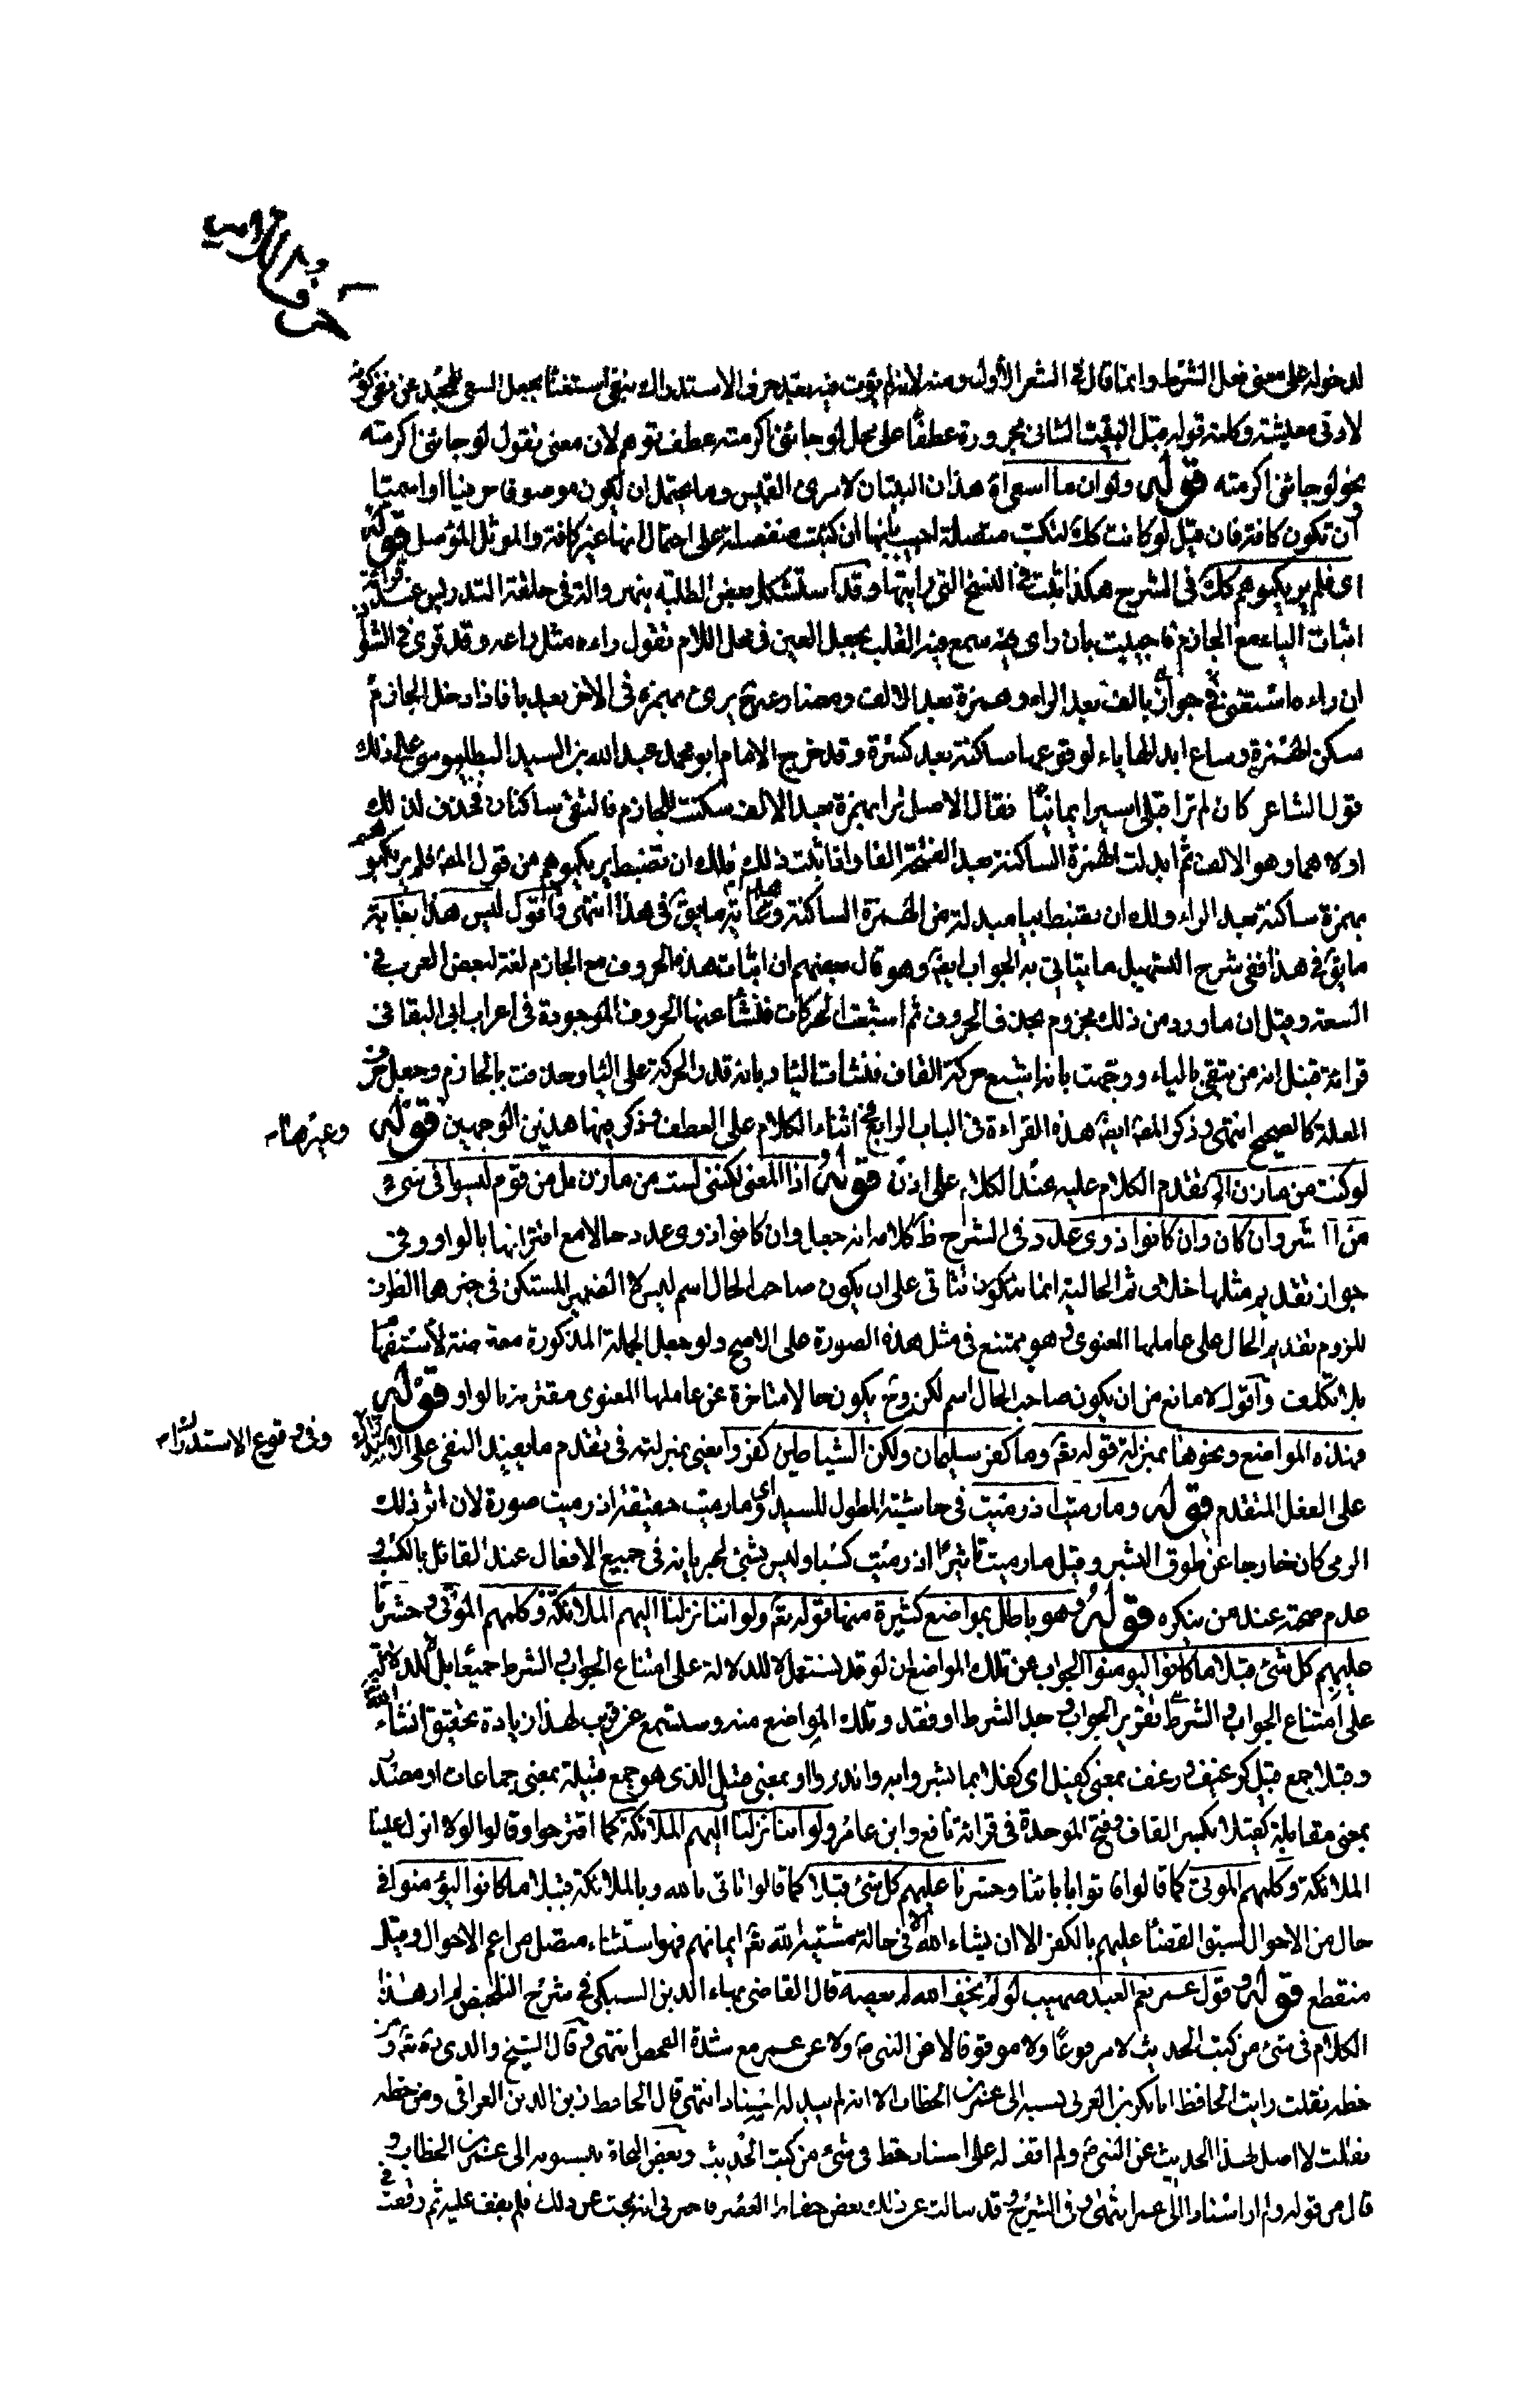 لدخوله على معنى فعل الشرط وانما قال في الشعر الأول ومنه لانه لم يؤت فيه بعد حرف الاستدراك بنقى استغناء بجعل السعى لمجد عن نفى كونه
لادنى معيشة وكلمة قوله قبل البيت الثانى مجرورة عطفا على محل لو جاءنى اكرمته عطف توهم لان معنى نقول لو جاءنى اكرمته
نحو لو جاءنى اكرمته قوله ولو ان ما اسعى اه هذان البيتان لامرئ القيس وما يحتمل ان يكون موصولا حرفيا او اسميا
وان تكون كافة فان قيل لو كانت كك لكتبت متصلة اجيب بانها ان كتبت منفصلة على احتمال انها غير كافة والموثل المؤصل قوله
اى فلم يريكموهم كك فى الشرح هكذا ثبت فى النسخ التى رايتها وقد استشكل بعض الطلبة بنهر والة فى حلقة التدريس عند قرائة
اثبات الياء مع الجازم فاجيبت بان راى فيه سمع فيه القلب بجعل العين فى محل اللام نقول راءه مثل راعه وقد قرئ فى الشواذ
ان راءه استغنى فى جواز بالف بعد الراء وهمزة بعد الالف ومضارعه ح يرئ بهمزة فى الاخر بعد يا فاذا دخل الجازم
سكن الهمزة وساغ ابدالها ياء لوقوعها ساكنة بعد كسرة وقد خرج الامام ابو محمد عبد الله بن السيد البطليوسى على ذلك
قول الشاعر كان لم ترا قبلى اسيرا يمانيا فقال الاصل ترا بهمزة بعد الالف سكنت للجازم فالتقى ساكنان فحذف لذلك
اولاهما وهو الالف ثم ابدلت الهمزة الساكنة بعد الفتحة الفا واذا ثبت ذلك فلك ان تضبط يريكموهم من قول المص فلم يريكموهم
بهمزة ساكنة بعد الراء ولك ان تضبط بيا مبدلة من الهمزة الساكنة وهذا غاية ما يق فى هذا انتهى واقول ليس هذا بغاية
ما يق فى هذا ففى شرح التسهيل ما يتاتى به الجواب ايضا وهو قال بعضهم ان اثبات هذه الحروف مع الجازم لغة لبعض العرب فى
السعة وقيل ان ما ورد من ذلك مجزوم بحذف الحروف ثم اشبعت الحركات فنشأ عنها الحروف الموجودة فى اعراب ابى البقا فى
قرائة قنبل انه من يتقى بالياء ووجهت بانه اشبع حركة القاف فنشات اليا وبانه قدر الحركة على اليا وحذفت بالجازم وجعل حرف
العلة كالصحيح انتهى وذكر المص ايضا هذه القراءة فى الباب الرابع فى اثناء الكلام على العطف وذكر فيها هذين الوجهين قوله
وغيرها
لو كنت من مازن اه تقدم الكلام عليه عند الكلام على اذن قوله اذ المعنى لكننى لست من مازن بل من قوم ليسوا فى شئ
من الشر وان كان وان كانوا ذوى عدد فى الشرح ظ كلامه انه جعل وان كانوا ذوى عدد حالا مع اقترانها بالواو وفى
جواز تقديم مثلها خلاف ثم الحالية انما تتاتى على ان يكون صاحب الحال اسم ليس لا الضمير المستكن فى خبرها الظرف
للزوم تقديم الحال على عاملها المعنوى وهو ممتنع فى مثل هذه الصورة على الاصح ولو جعل الجملة المذكورة معترضة لاستقام
بلا تكلف واقول لا مانع من ان يكون صاحب الحال اسم لكن وح يكون حالا متاخرة عن عاملها المعنوى مقترنة بالواو قوله
فهذه المواضع ونحوها بمنزلة قوله تعم وما كفر سليمان ولكن الشياطين كفروا يعنى بمنزلته فى تقدم ما يفيد النفى على الاستدراك
وفى وقوع الاستدراك
على الفعل المتقدم قوله وما رميت اذ رميت فى حاشية المطول للسيد اى وما رميت حقيقة اذ رميت صورة لان اثر ذلك
الرمى كان خارجا عن طوق البشر وقيل ما رميت تاثيرا اذ رميت كسبا وليس بشئ لجريانه فى جميع الافعال عند القائل بالكسب و
عدم صحته عند من ينكره قوله وهو باطل بمواضع كثيرة منها قوله تعم ولو اننا نزلنا اليهم الملائكة وكلمهم الموتى وحشرنا
عليهم كل شئ قبلا ما كانوا ليؤمنوا الجواب عن تلك المواضع ان لو قد تستعمل لا للدلالة على امتناع الجواب والشرط جميعا بل للدلالة
على امتناع الجواب والشرط تقرير الجواب وجد الشرط او فقد وتلك المواضع منه وستسمع عن قريب لهذا زيادة تحقيق انشاء الله
وقبلا جمع قبيل كرغيف ورغف بمعنى كفيل اى كفلا بما بشروا به وانذروا او بمعنى قبيل الذى هو جمع قبيلة بمعنى جماعات او مصدر
بمعنى مقابلة كقبلا بكسر القاف وفتح الموحدة فى قرائة نافع وابن عامر ولو اننا نزلنا اليهم الملائكة كما اقترحوا وقالوا لولا انزل علينا
الملائكة وكلمهم الموتى كما قالوا فاتوا بابائنا وحشرنا عليهم كل شئ قبلا كما قالوا تاتى بالله وبالملائكة قبيلا ما كانوا ليؤمنوا فى
حال من الاحوال لسبق القضا عليهم بالكفر الا ان يشاء الله الا فى حالة مشتية الله تعم ايمانهم فهو استثناء متصل من اعم الاحوال وقيل
منقطع قوله وقول عمر نعم العبد صهيب لو لم يخف الله لم يعصه قال القاضى بهاء الدين السبكى فى شرح التلخيص لم ار هذا
الكلام فى شئ من كتب الحديث لا مرفوعا ولا موقوفا لا عن النبى ص ولا عن عمر مع شدة الفحص انتهى وقال الشيخ والدى ره ومن
خطه نقلت رايت الحافظ ابا بكر بن العربى نسبه الى عمر بن الخطاب الا انه لم يبد له اسنادا انتهى قال الحافظ زين الدين العراقى ومن خطه
نقلت لا اصل لهذا الحديث عن النبى ص ولم اقف له على اسناد قط فى شئ من كتب الحديث وبعض النحاة ينسبونه الى عمر بن الخطاب و
قال من قوله ولم ار اسنادا الى عمر انتهى وفى الشرح وقد سالت عن ذلك بعض حفاظ العصر فاخبرنى انه بحث عن ذلك فلم يقف عليه ثم وقفت فى